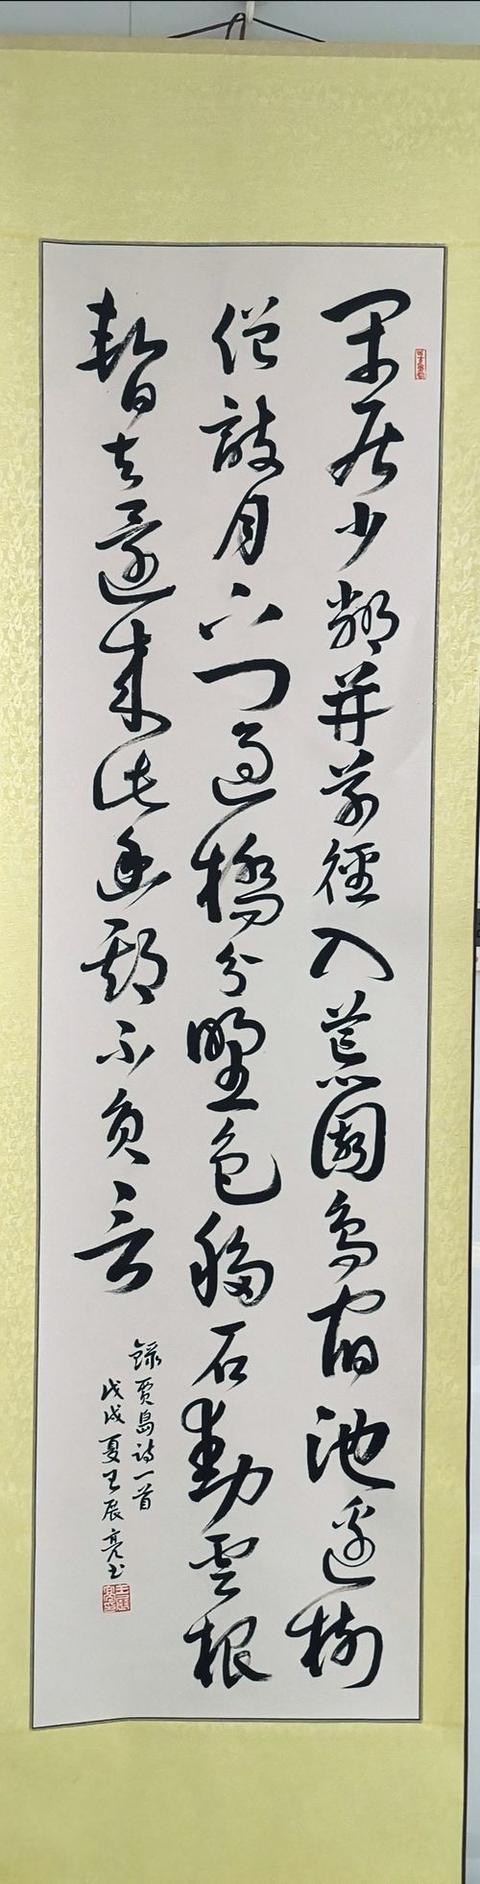 閒居少鄰并草徑入荒園鳥宿池邊樹
僧敲月下門過橋分野色移石動雲根
暫去還來此幽期不負言
錄賈島詩一首
戊戌夏王展亮書